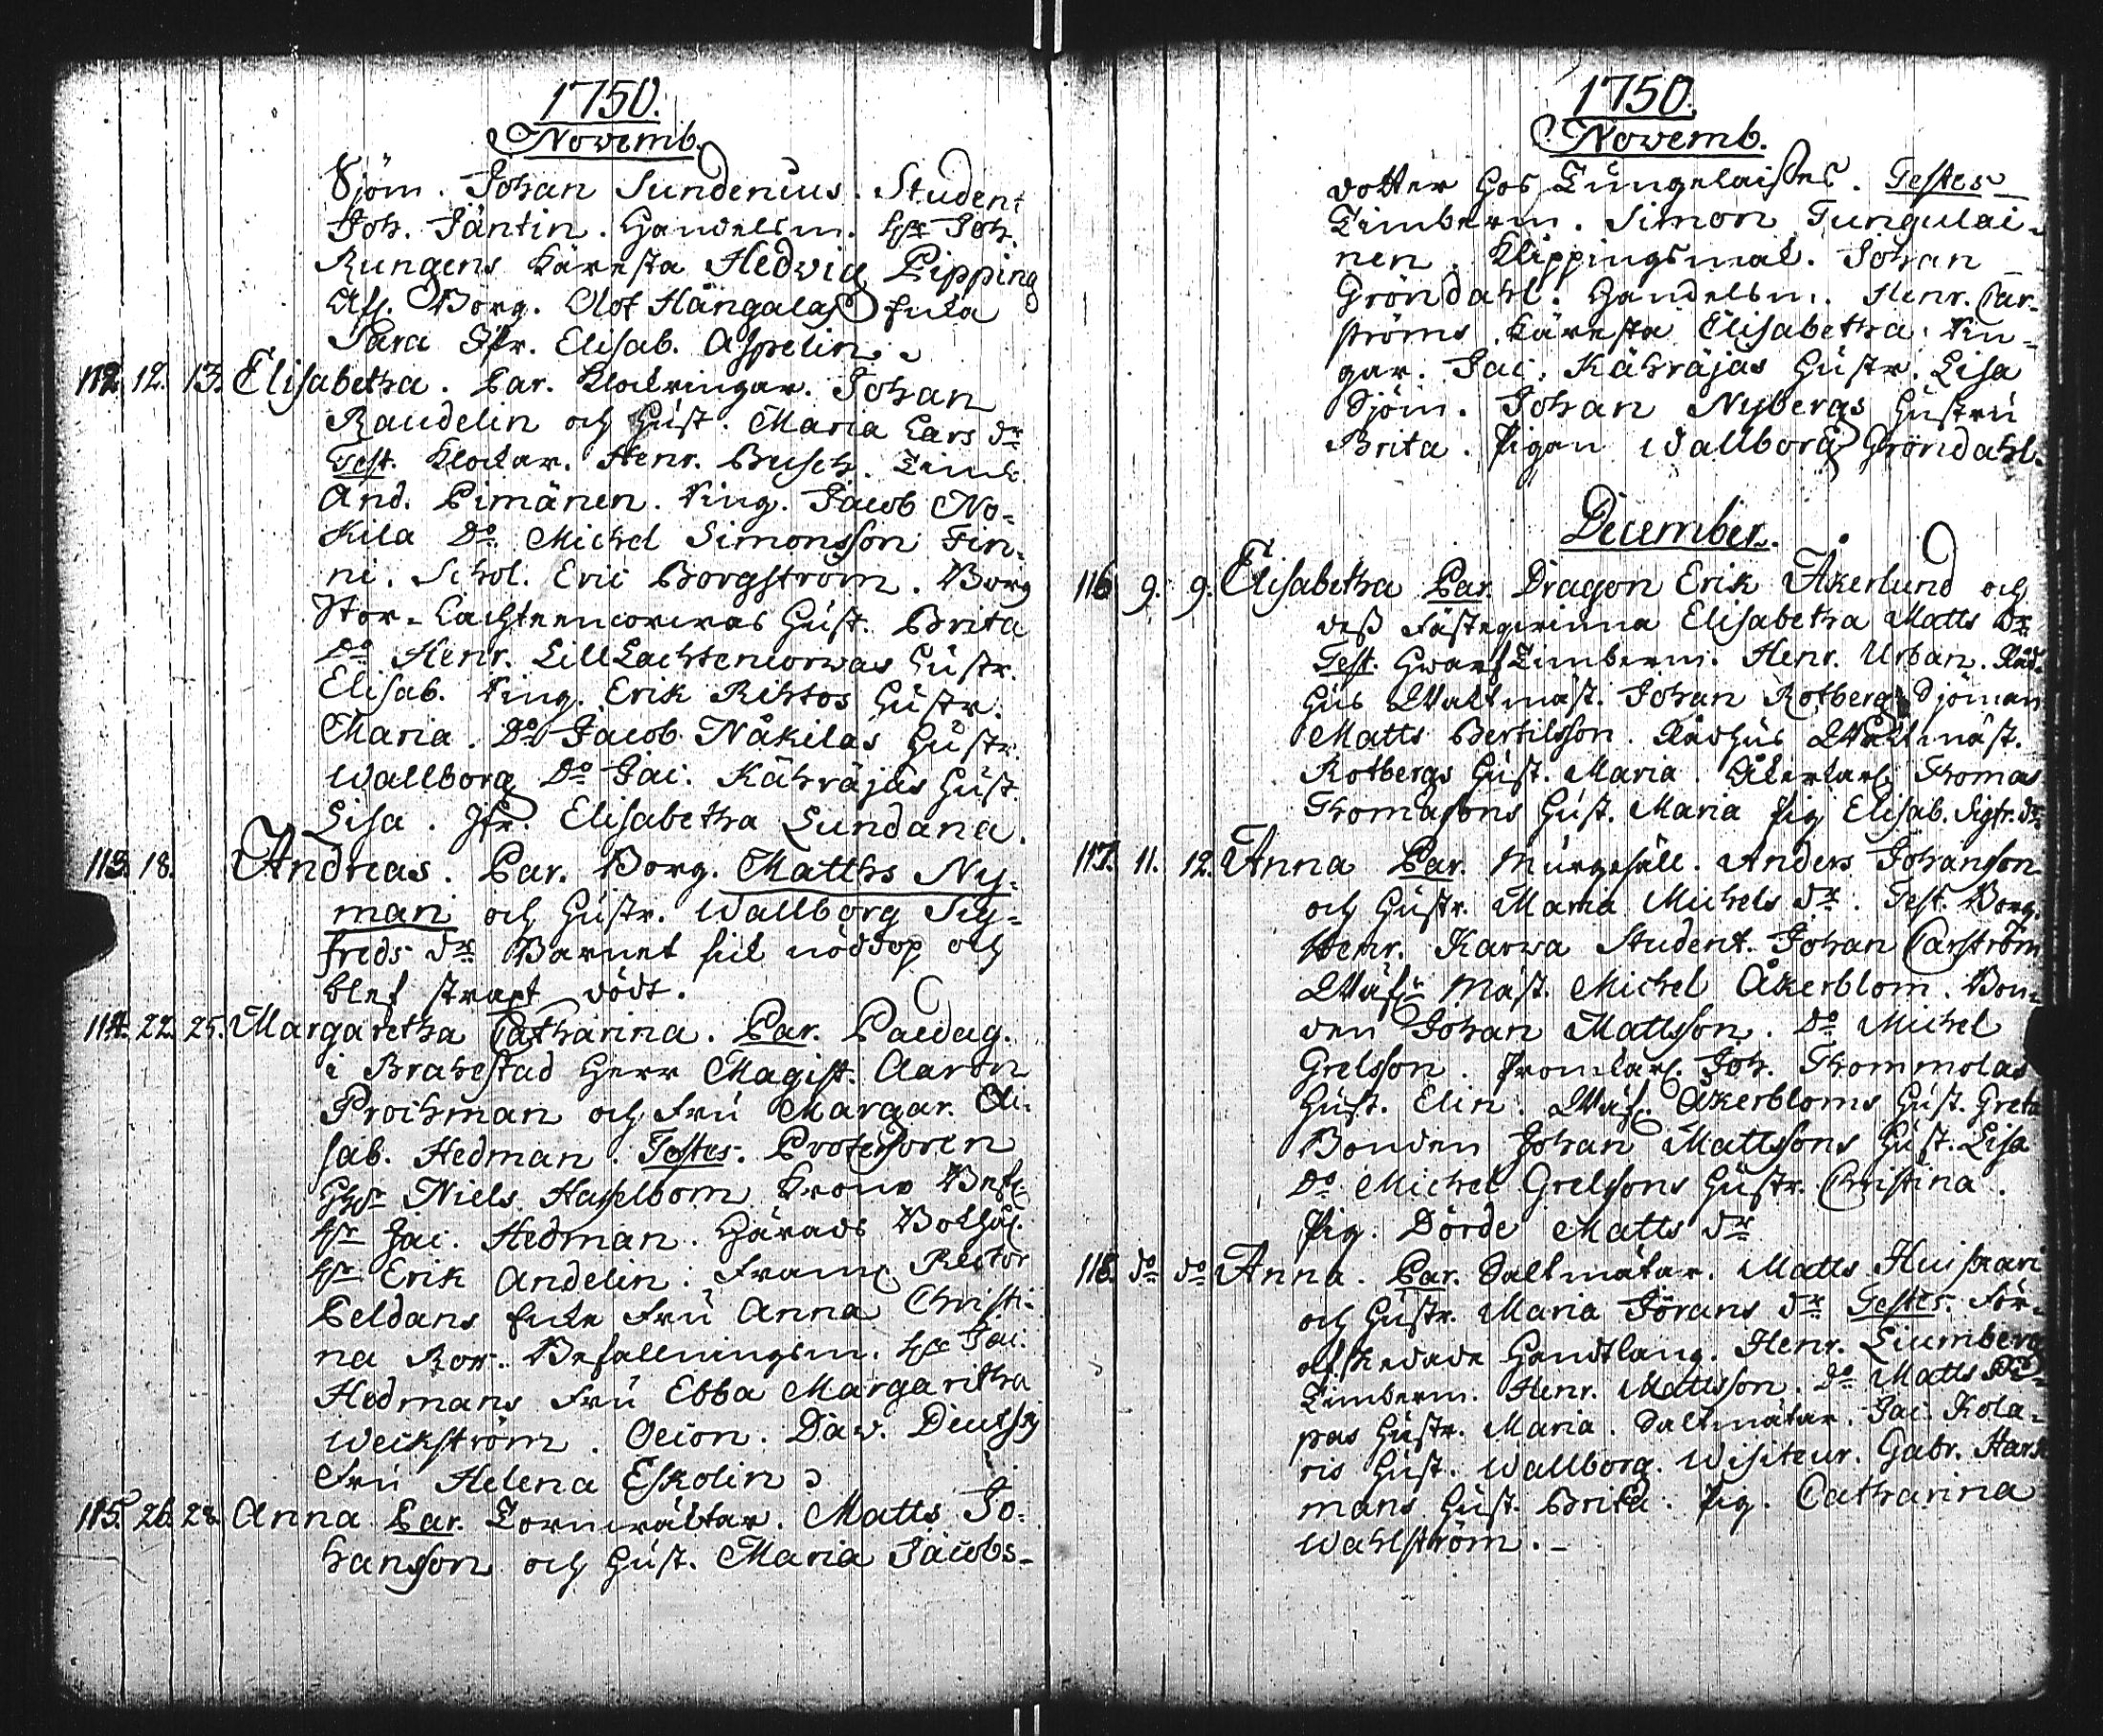 1750.
Novemb.
Sjöm. Johan Sundenius. Student
Joh. Jäntin. Handelsm. Hr Joh.
Rungens käresta Hedvig Pipping
Borg. Olof Hängalas Enka
Sara Jfr. Elisab. Aspelin.
112. 12. 13. Elisabetha. Par. Klockringar. Johan
Raudelin och Hust. Maria Lars dr
Test. Klockar. Henr. Busch. Timb.
And. Pimänen. Ring. Jacob No-
kila Do Michel Simonsson Fin-
ni. Schol. Eric Borgström. Borg
Stor-Lachteencorwas Hust. Brita
Do Henr. Lill Lachtencorwas Hustr.
Elisab. Ring. Erik Rihtos Hustr.
Maria. Do Jacob Nåkilas Hustr.
Wallborg Do Jac. Kähräjäs Hust.
Lisa. Jfr. Elisabetha Lundana.
113. 18. Andreas. Par. Borg. Matths Ny-
man och Hustr. Wallborg Sig-
freds dr Barnet fick nöddop och
blef straxt dödt.
114. 22. 25. Margaretha Catharina. Par. Paedag.
i Brahestad Herr Magist. Aaron
Prochman och Fru Margar. Eli-
sab. Hedman. Testes. Professoren
Hr Niels Hasselbom Krono Bef.
Hr Jac. Hedman. Härads Bokhål.
Hr Erik Andelin. Framl. Rector
Peldans Enke Fru Anna Christi-
na Ross. Befallningsm. Hr Jac.
Hedmans Fru Ebba Margaretha
Weckström. Oecon. Daw. Deutsch
Fru Helena Eskolin
115. 26. 28. Anna Par. Tornwäktar. Matts Jo-
hansson och Hust. Maria Jacobs-
1750.
Novemb.
dotter hos Tungelaises. Testes
Timberm. Simon Tungulai-
nen. Klippingsmak. Johan
Gröndahl. Handelsm. Henr. Car-
ströms käresta Elisabetha. Rin-
gar. Jac. Kähräjas Hustr. Lisa
Sjöm. Johan Nybergs Hustru
Brita. Pigan Wallborg Gröndahl.
December.
116. 9. 9. Elisabetha Par. Dragon Erik Åkerlund och
dess Fästeqwinna Elisabetha Matts Dr
Test. Hwarf Timberm. Henr. Urban. Råd-
hus Waktmäst. Johan Rotberg Sjöman
Matts Bertilsson. Rådhus Waktmäst.
Rotbergs Hust. Maria. Åkerkarl Thomas
Thomassons Hust. Maria Pig Elisab. Sigfr. dr
117. 11. 12. Anna Par. Murgesäll. Anders Johansson
och Hustr. Maria Michels dr. Test. Borg.
Henr. Karwa Student. Johan Carström
Mäst. Michel Åkerblom. Bon-
den Johan Mattsson. Do Michel
Grelsson. Joh. Thommolas
Hust. Elin. Åkerbloms Hust. Greta
Bonden Johan Mattssons Hust. Lisa
Do Michel Grelssons Hustr. Christina.
Pig. Dorde Matts dr
118. do do Anna. Par. Saltmätar. Matts Huispari
och Hustr. Maria Jörans dr Testes. För-
afskedade Handtlang. Henr. Liumberg
Timberm. Henr. Mattsson. Do Matts
pas Hustr. Maria. Saltmätar. Jac. Kola-
ris Hust. Wallborg. Wisiteur. Gabr. Hark
mans Hust. Brita. Pig. Catharina
Wahlström.